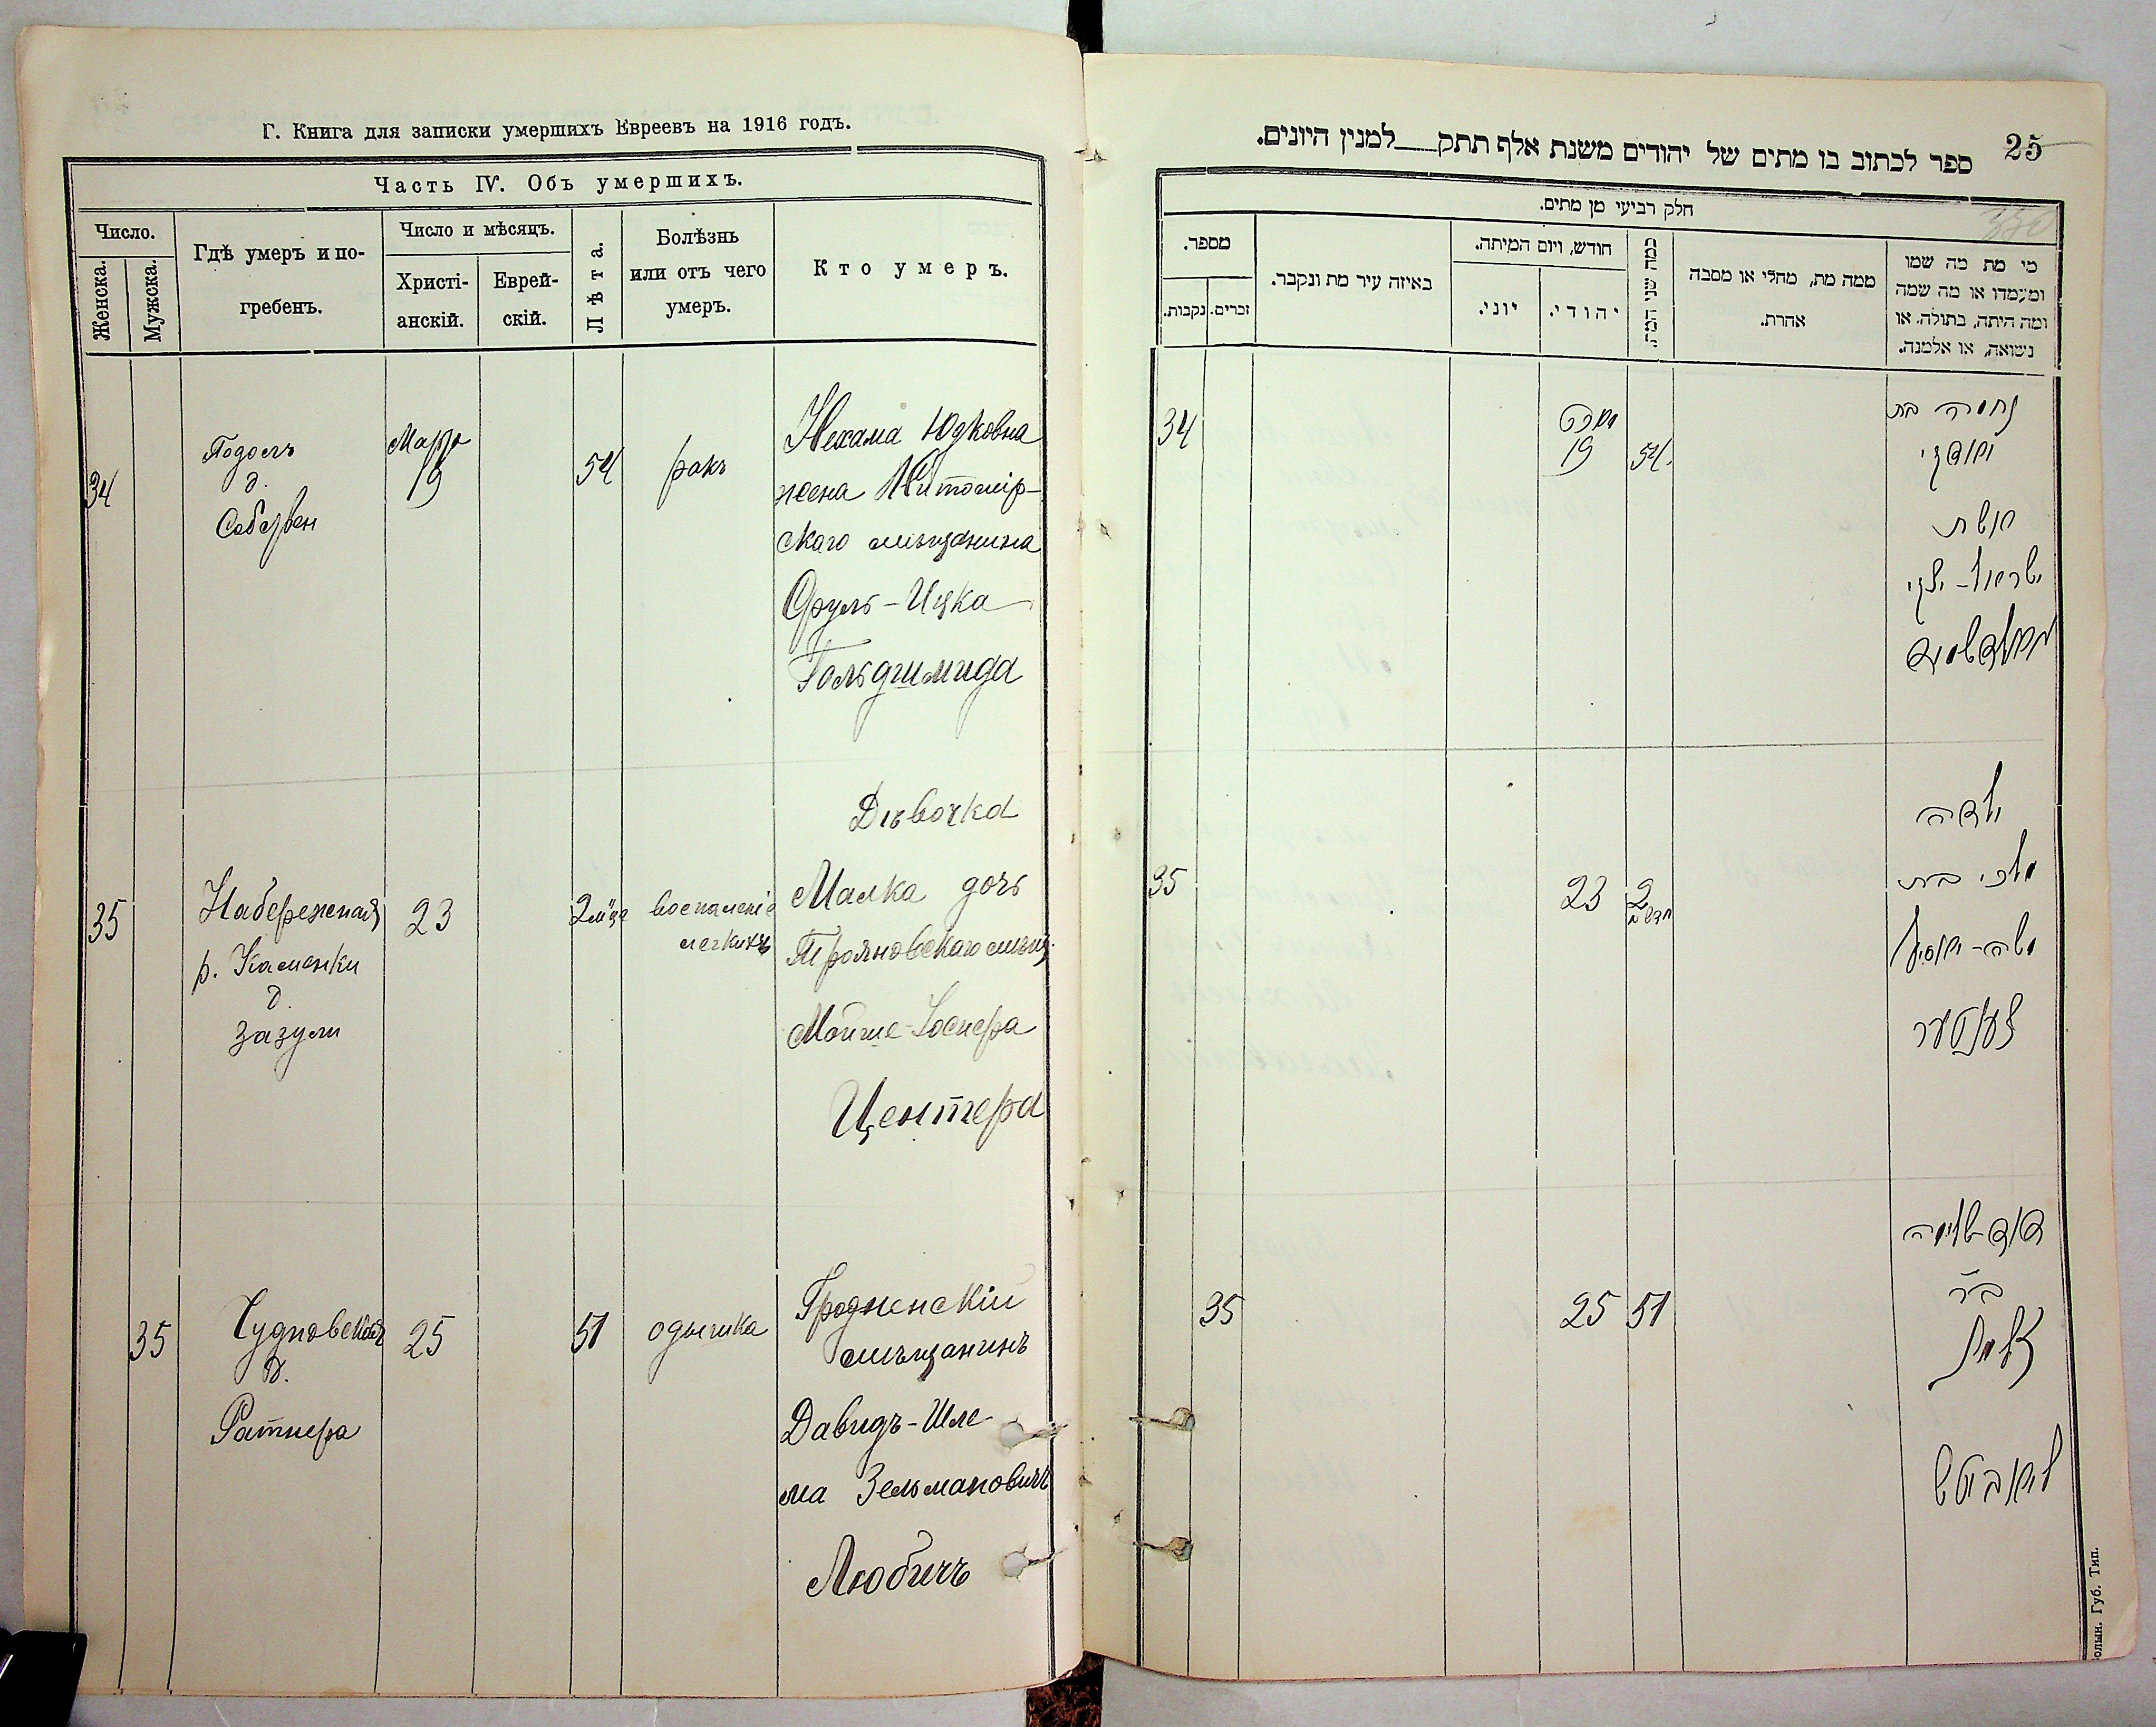 Г. Книга для записки умершихъ Евреевъ на 1916 годъ.
Часть IV. Объ умершихъ.
Число.
Женска.
Мужска.
Гдѣ умеръ и по-
гребенъ.
Число и мѣсяцъ.
Христі-
анскій.
Еврей-
скій.
Лѣта.
Болѣзнь
или отъ чего
умеръ.
Кто умеръ.
34
Подолъ
д.
Мартъ
19
54
ракъ
Нехама Юдковна
жена Житомір-
скаго мѣщанина
Сруль-Ицка
Гольдшмида
35
Набережная
р. Каменки
д.
Зазули
23
2 м-ца
воспаленіе
легкихъ
Дѣвочка
Малка дочь
Трояновскаго мѣщ.
Мойше-Іосифа
Центера
35
Чудновская
д.
Ратнера
25
51
одышка
Гродненскій
мѣщанинъ
Давидъ-Шле-
ма Зельмановичъ
Любичъ
25
ספר לכתוב בו מתים של יהודים משנת אלף תתק למנין היונים.
חלק רביעי מן מתים.
מספר.
נקבות.
זכרים.
באיזה עיר מת ונקבר.
חודש, ויום המיתה.
יוני.
יהודי.
כמה שני המת.
ממה מת, מחלי או מסבה
אחרת.
מי מת מה שמו
ומעמדו או מה שמה
ומה היתה, בתולה, או
נשואה, או אלמנה.
34
מארט
19
54.
נחמה בת
יודקי
אשת
ישראל-איצקי
גאלדשמיד
35
23
2
חדשים
ילדה
מלכי בת
משה-יוסף
צענטער
35
25
51
דוד-שלמה
ב״ר
זלמן
ליובітש
Волын. Губ. Тип.